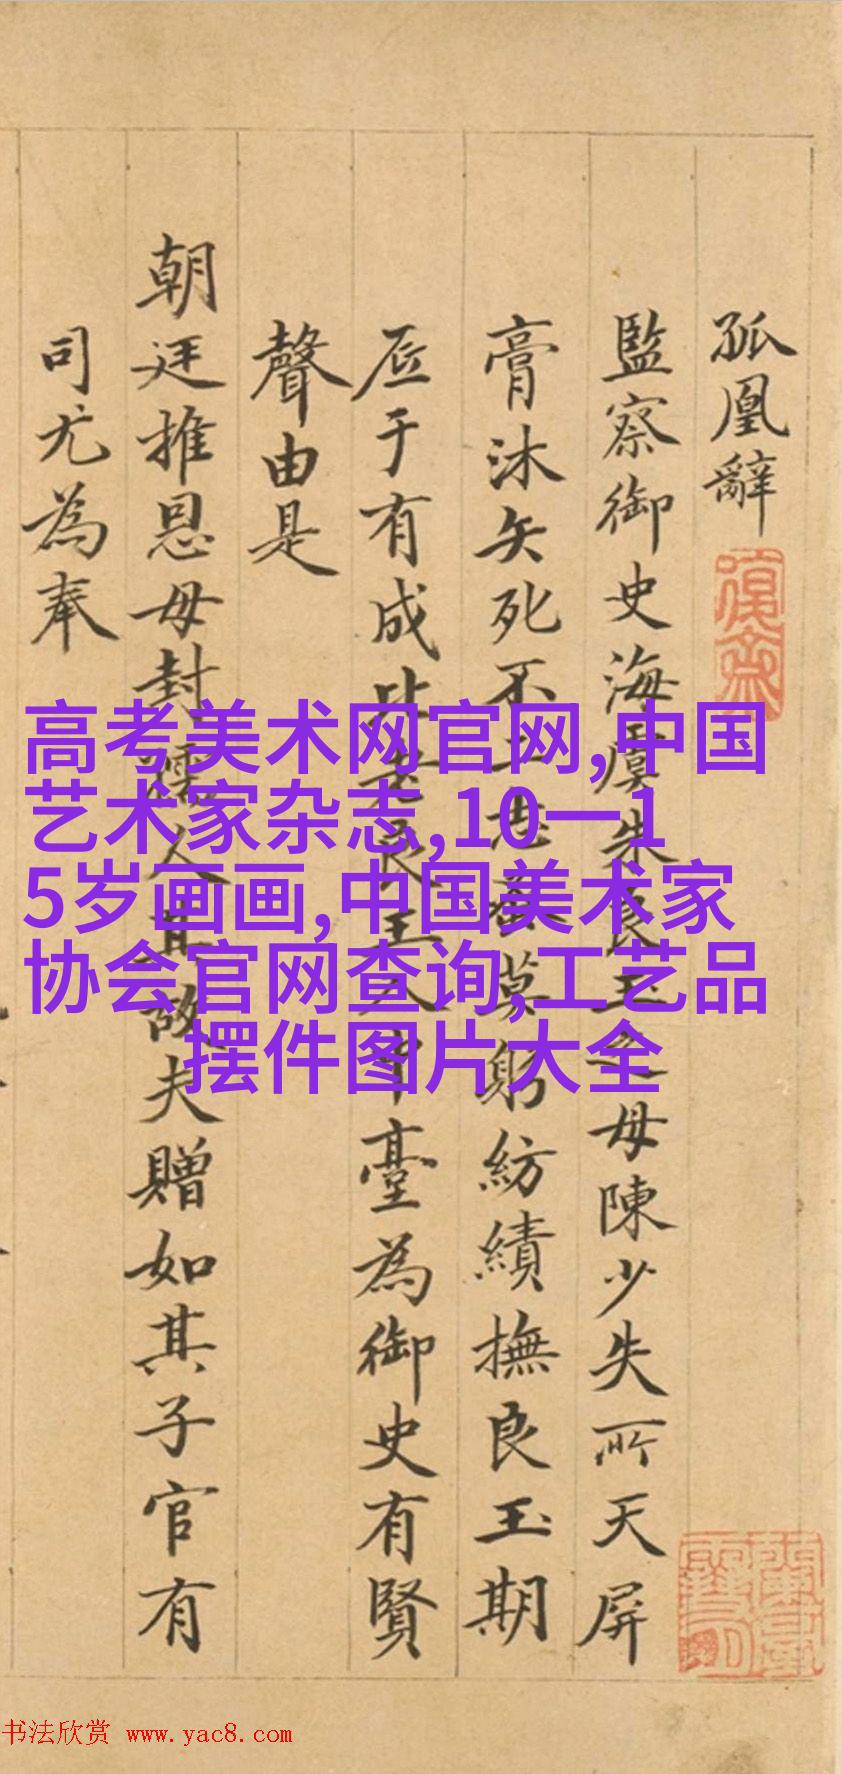 孤凰辭
監察御史海虞朱良玉之母陳少失所天屏
膏沐矢死不二志蚤莫躬紡績撫良玉期
底于有成比老良玉入中臺為御史有賢
聲由是
朝廷推恩母封孺人其故夫贈如其子官有
司尤為奉
高考美术网官网,中国
艺术家杂志,10一1
5岁画画,中国美术家
协会官网查询,工艺品
摆件图片大全
书法欣赏 www.yac8.com